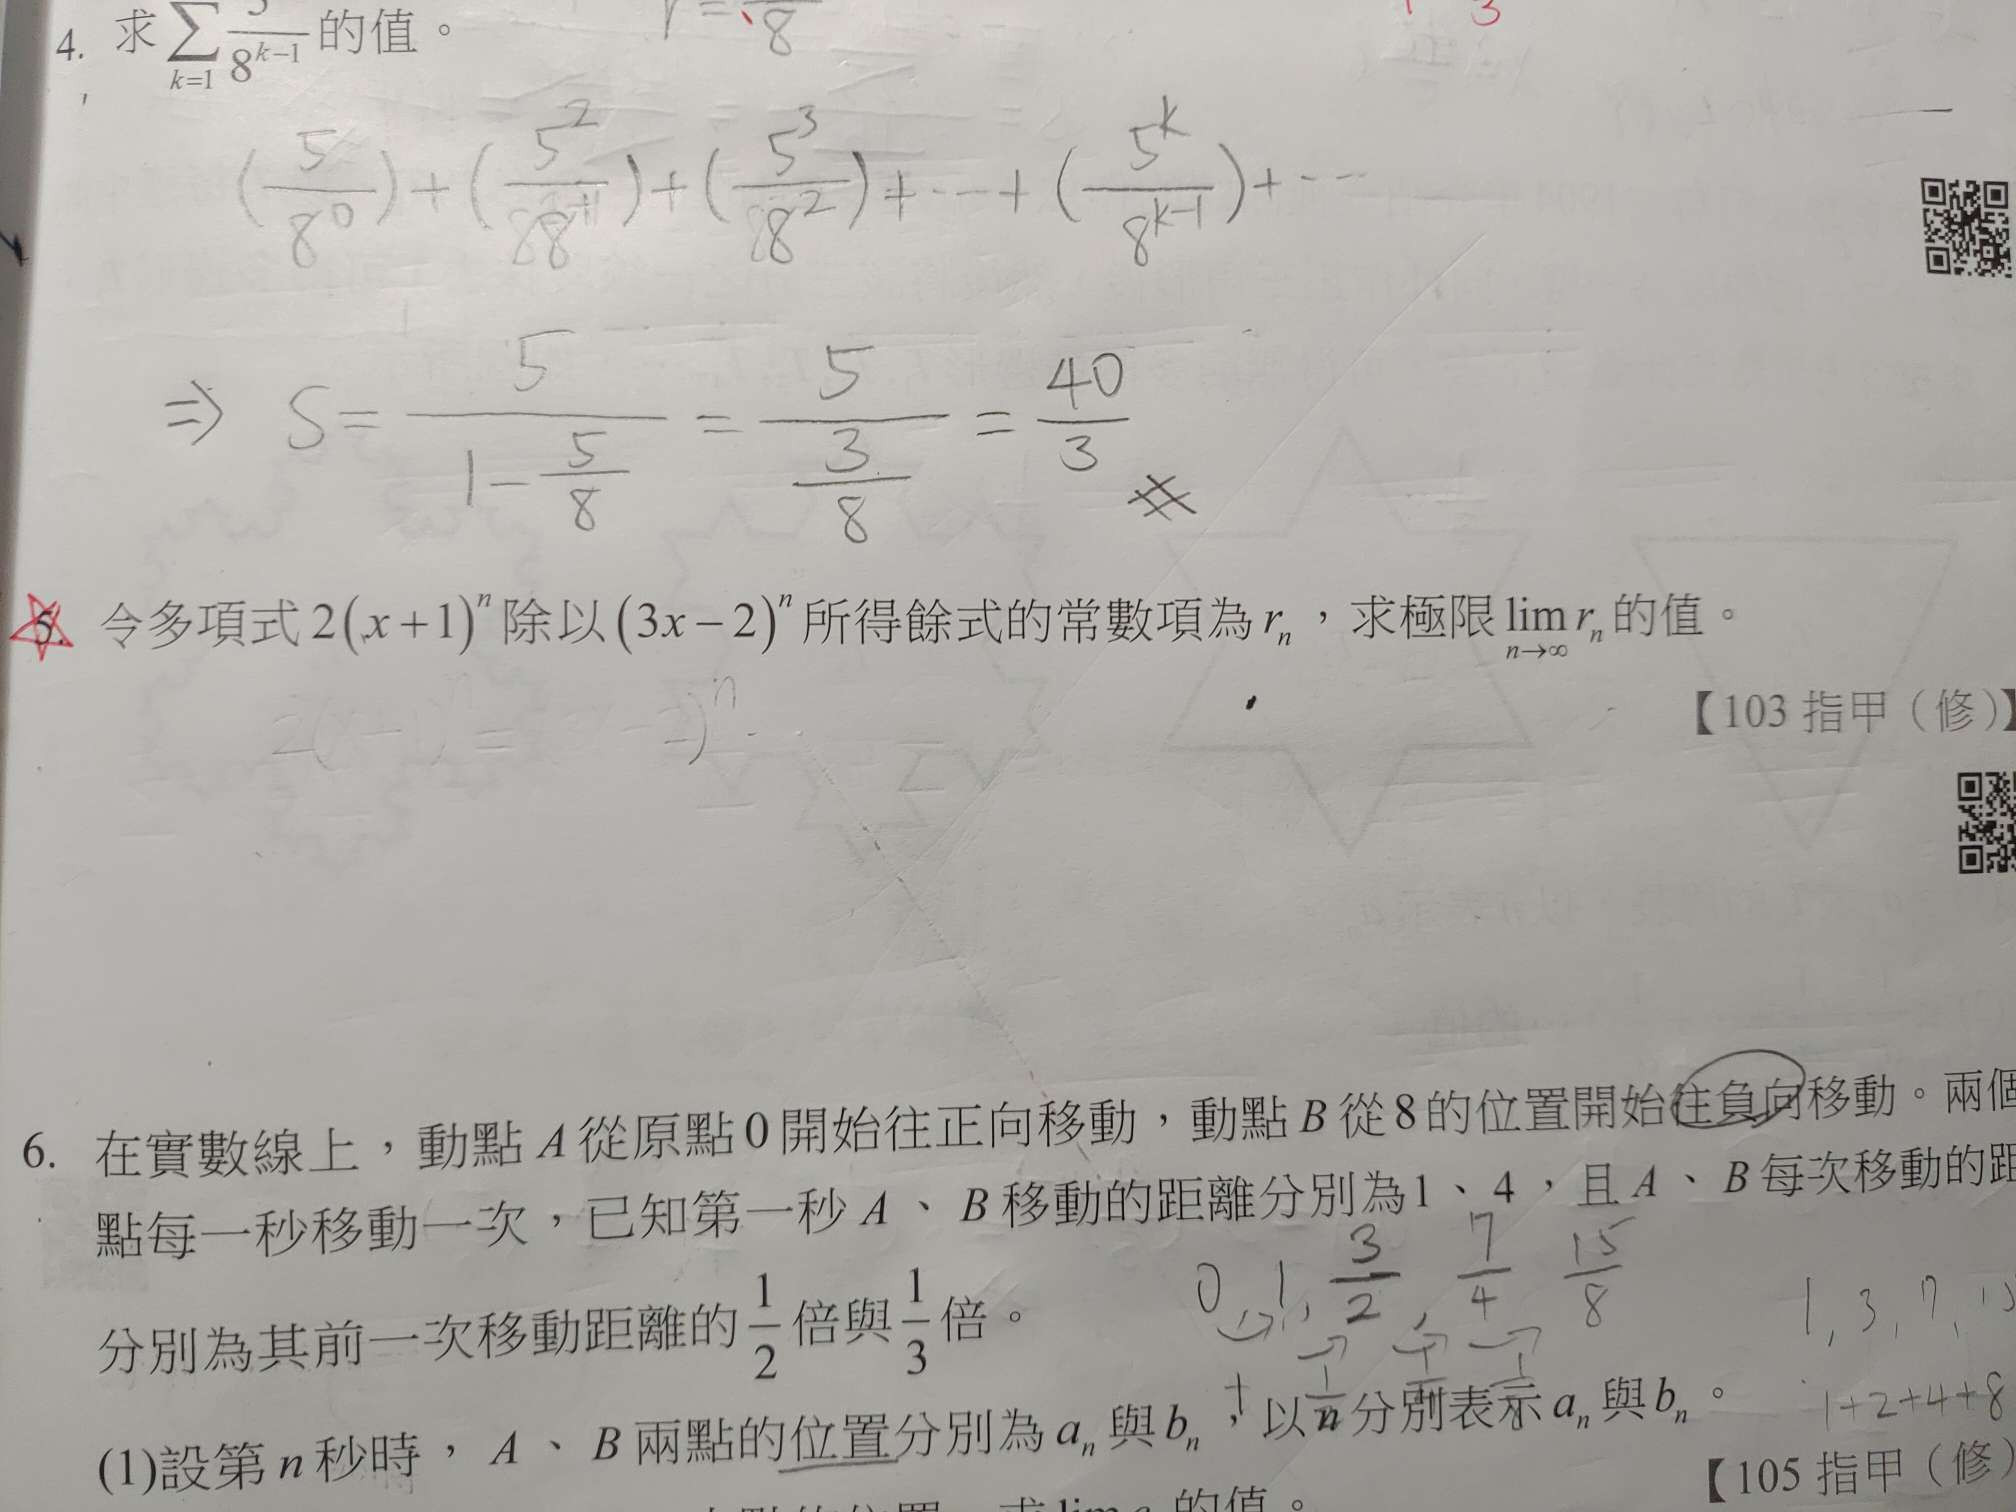 r = 8
3
4. 求 ∑ k=1 8^(k−1) 的值。
(5/8^0) + (5^2/8^1) + (5^3/8^2) + ⋯ + (5^k/8^(k−1)) + ⋯
⇒ S = 5/(1 − 5/8) = 5/(3/8) = 40/3 #
5. 令多項式 2(x+1)^n 除以 (3x−2)^n 所得餘式的常數項為 r_n，求極限 lim n→∞ r_n 的值。
【103 指甲（修）】
6. 在實數線上，動點 A 從原點 0 開始往正向移動，動點 B 從 8 的位置開始往負向移動。兩個
點每一秒移動一次，已知第一秒 A、B 移動的距離分別為 1、4，且 A、B 每次移動的距
0, 1, 3/2, 7/4 15/8
1, 3, 7, 15
分別為其前一次移動距離的 1/2 倍與 1/3 倍。
(1)設第 n 秒時，A、B 兩點的位置分別為 a_n 與 b_n，以 n 分別表示 a_n 與 b_n。
1+2+4+8
【105 指甲（修）
的值。